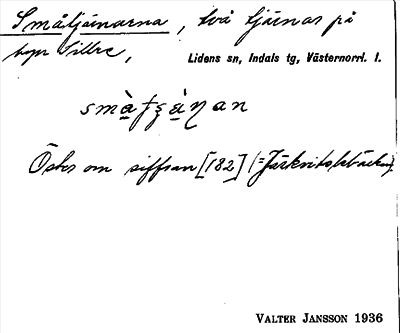 Småtjärnarna, två tjärnar på
byn Sillre, Lidens sn, Indals tg, Västernorrl. l.
Öster om siffran [182] (=
VALTER JANSSON 1936